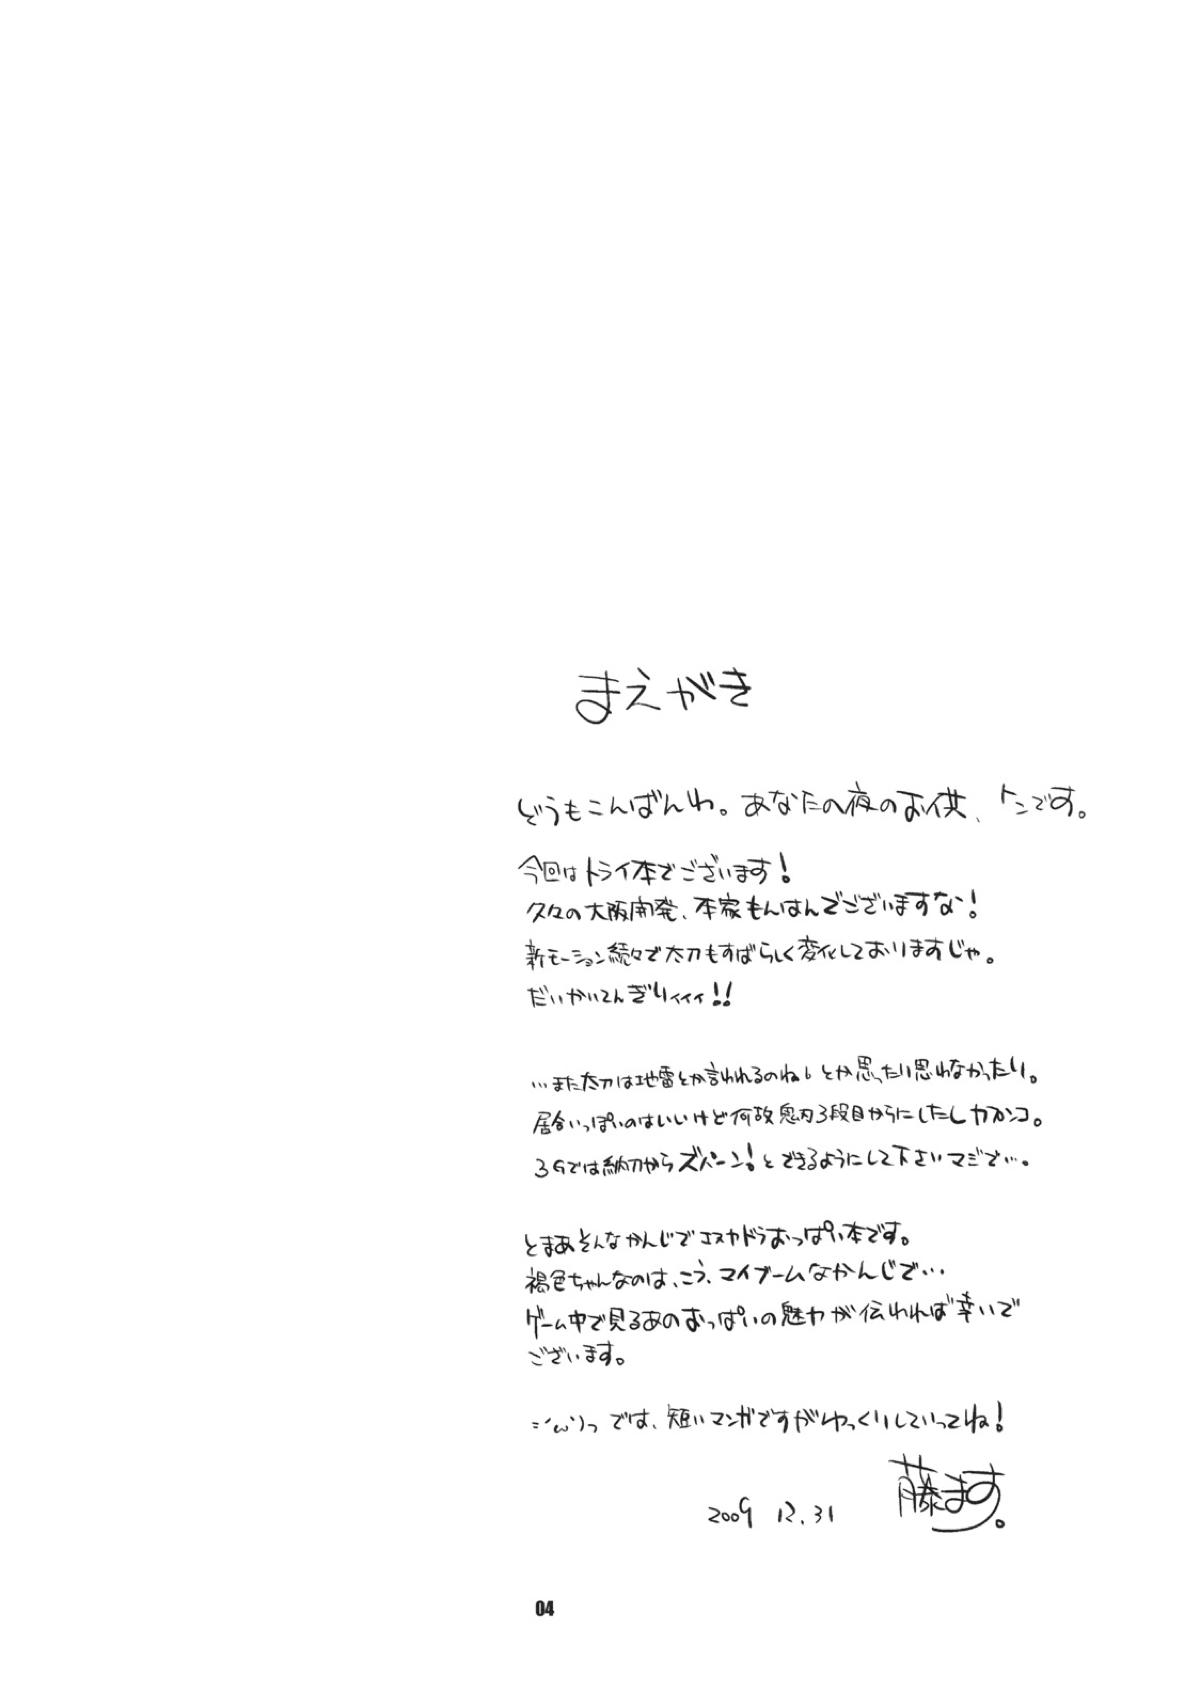 まえがき
どうもこんばんわ。あなたの夜のお供、トンです。
今回はトライ本でございます!
久々の大阪開発、本家もんはんでございますな!
新モーション続々で太刀もすばらしく変化しておりますじゃ。
だいかいてんぎりィィィ!!
…また太刀は地雷とか言われるのね、とか思ったり思わなかったり。
居合いっぽいのはいいけど何故鬼刃3段目からにしたしカプンコ。
3Gでは納刀からズバーン!とできるようにして下さいマジで…。
とまあそんなかんじでエスカドラおっぱい本です。
褐色ちゃんなのは、こう、マイブームなかんじで…
ゲーム中で見るあのおっぱいの魅力が伝われば幸いで
ございます。
では、短いマンガですがゆっくりしていってね!
藤ます。
2009 12.31
04